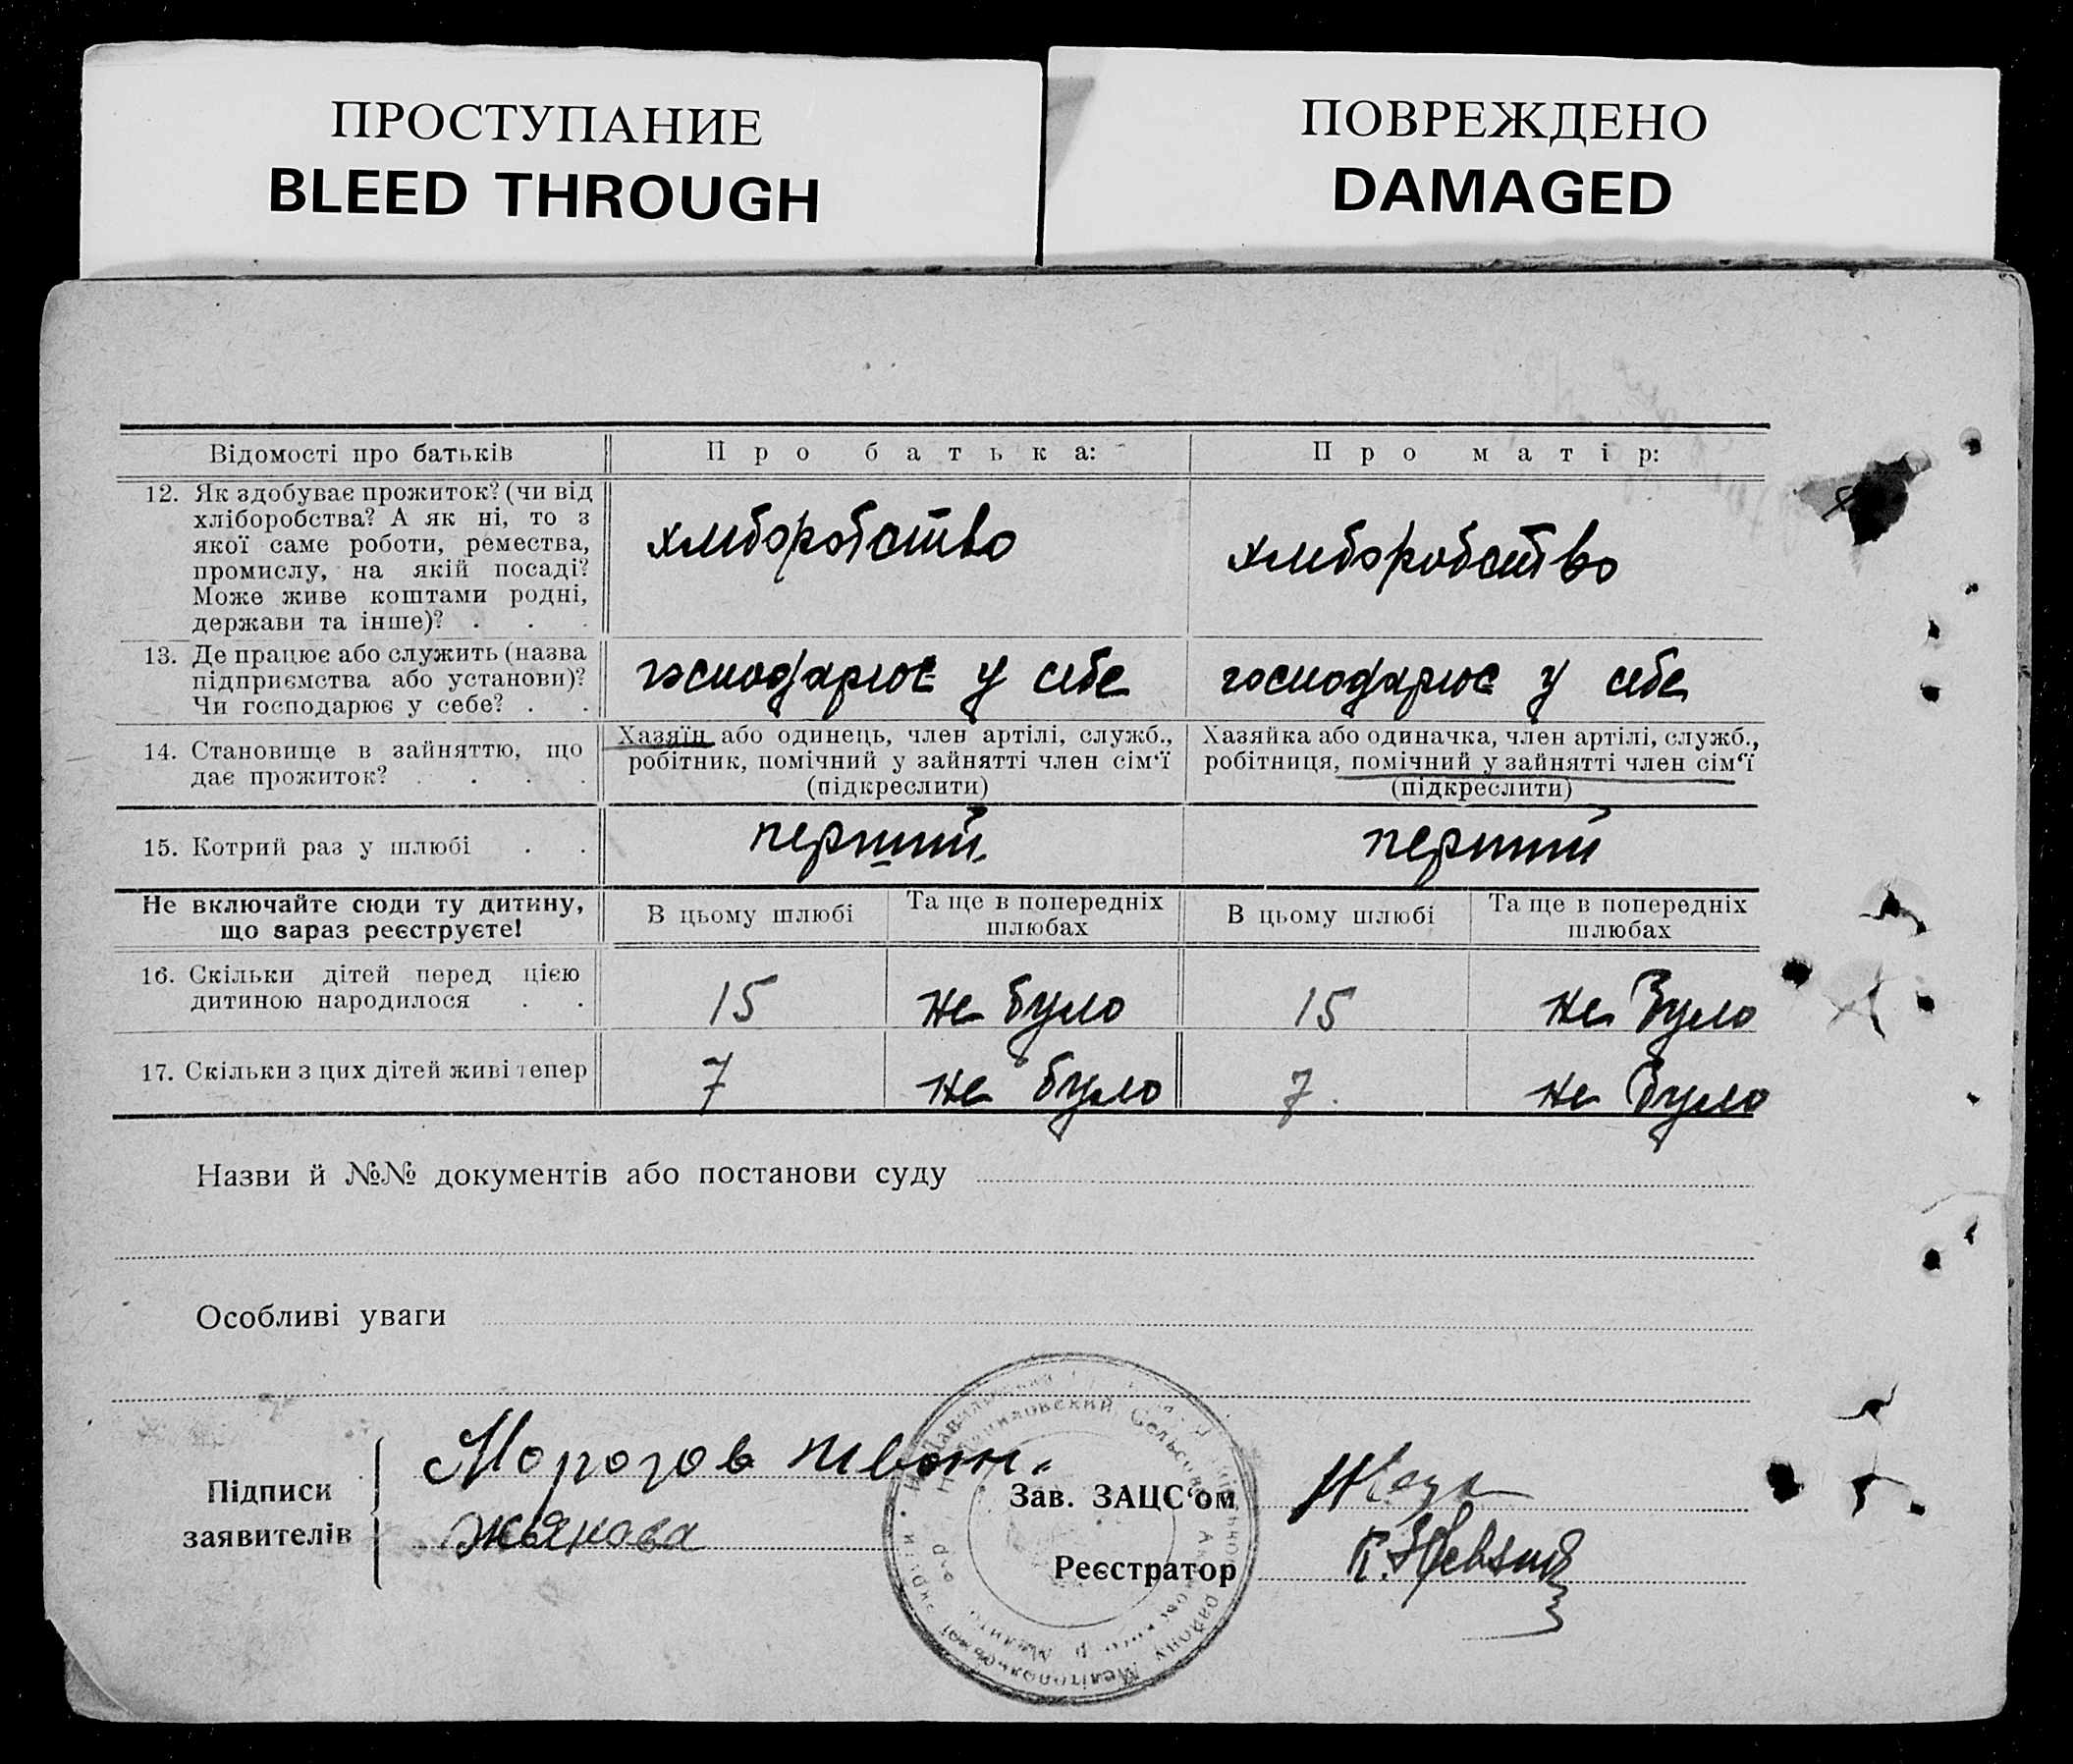 ПРОСТУПАНИЕ
BLEED THROUGH
ПОВРЕЖДЕНО
DAMAGED
Відомості про батьків
Про батька:
Про матір:
12. Як здобуває прожиток? (чи від
хліборобства? А як ні, то з
якої саме роботи, ремества,
промислу, на якій посаді?
Може живе коштами родні,
держави та інше)? . . .
хлиборобство
хлиборобство
13. Де працює або служить (назва
підприємства або установи)?
Чи господарює у себе? . .
господарює у себе
господарює у себе
14. Становище в зайняттю, що
дає прожиток? . . . .
Хазяїн або одинець, член артілі, служб.,
робітник, помічний у зайнятті член сім‘ї
(підкреслити)
Хазяйка або одиначка, член артілі, служб.,
робітниця, помічний у зайнятті член сім‘ї
(підкреслити)
15. Котрий раз у шлюбі . .
перший
перший
Не включайте сюди ту дитину,
що зараз реєструєте!
В цьому шлюбі
Та ще в попередніх
шлюбах
В цьому шлюбі
Та ще в попередніх
шлюбах
16. Скільки дітей перед цією
дитиною народилося . .
15
не було
15
не було
17. Скільки з цих дітей живі тепер
7
не було
7.
не було
Назви й №№ документів або постанови суду
Особливі уваги
Підписи
заявителів
Морозов
Зав. ЗАЦС‘ом
Реєстратор
Сельсовет
району Мелітопольської округи